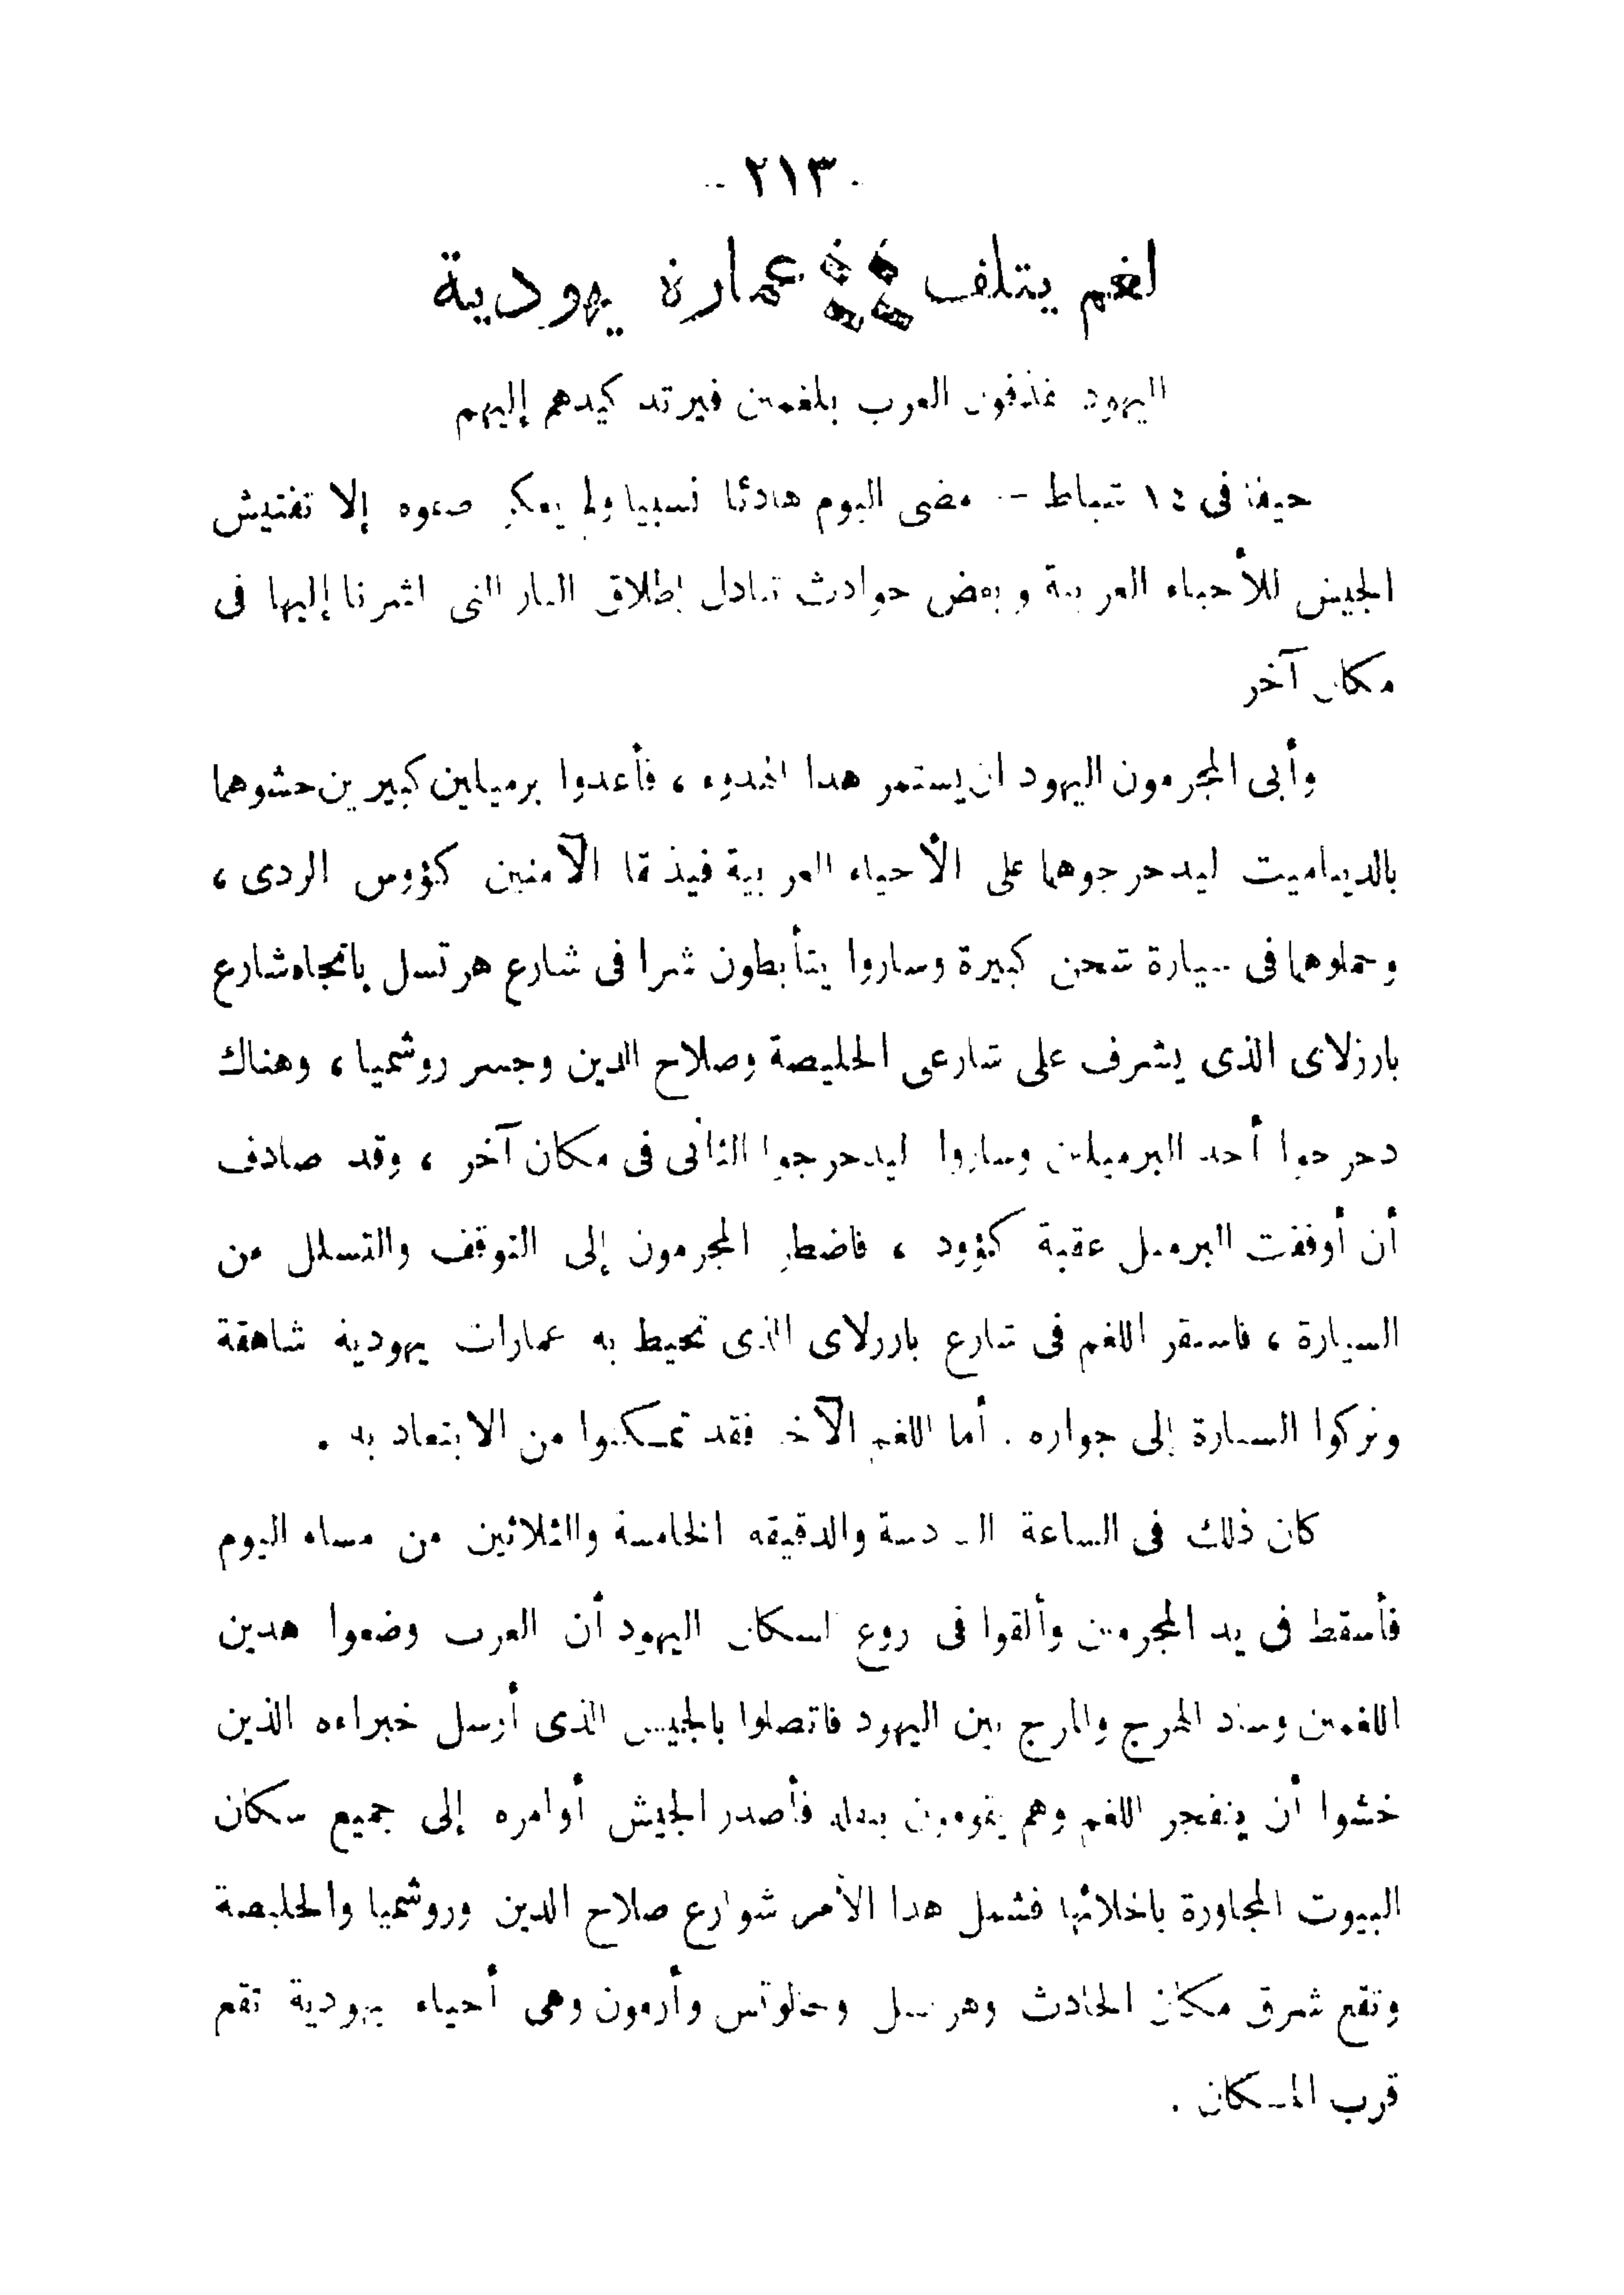 - ٢١٣ -
لغم يتلف ٤٤ عمارة يهودية
اليهود يقذفون العرب بلغمين فيرتد كيدهم إليهم
حيفا فى ١٤ شباط - مضى اليوم هادئا نسبيا ولم يعكر صفوه إلا تفتيش
الجيش للأحياء العربية وبعض حوادث تبادل إطلاق النار التى اشرنا إليها فى
مكان آخر
وأبى المجرمون اليهود ان يستمر هدا الهدوء ، فأعدوا برميلين كبيرين حشوهما
بالديناميت ليدحرجوهما على الأحياء العربية فيذيقا الآمنين كؤوس الردى ،
وحملوهما فى سيارة شحن كبيرة وساروا يتأبطون شرا فى شارع هرتسل باتجاه شارع
بارزلاى الذى يشرف على شارعى الحليصة وصلاح الدين وجسر روشميا ، وهناك
دحرجوا أحد البرميلين وساروا ليدحرجوا الثانى فى مكان آخر ، وقد صادف
أن أوقفت البرميل عقبة كؤود ، فاضطر المجرمون إلى التوقف والتسلل من
السيارة ، فاستقر اللغم فى شارع بارزلاى الذى تحيط به عمارات يهودية شاهقة
وتركوا السيارة إلى جواره . أما اللغم الآخر فقد تمكنوا من الابتعاد به .
كان ذلك فى الساعة السادسة والدقيقه الخامسة والثلاثين من مساء اليوم
فأسقط فى يد المجرمين وألقوا فى روع السكان اليهود أن العرب وضعوا هدين
اللغمين وساد الهرج والمرج بين اليهود فاتصلوا بالجيش الذى أرسل خبراءه الذين
خشوا أن ينفجر اللغم وهم يقومون بنقله فأصدر الجيش أوامره إلى جميع سكان
البيوت المجاورة باخلائها فشمل هدا الأمر شوارع صلاح الدين وروشميا والحليصة
وتقع شرق مكان الحادث وهرتسل وحالوتس وأرمون وهى أحياء يهودية تقع
قرب المكان .